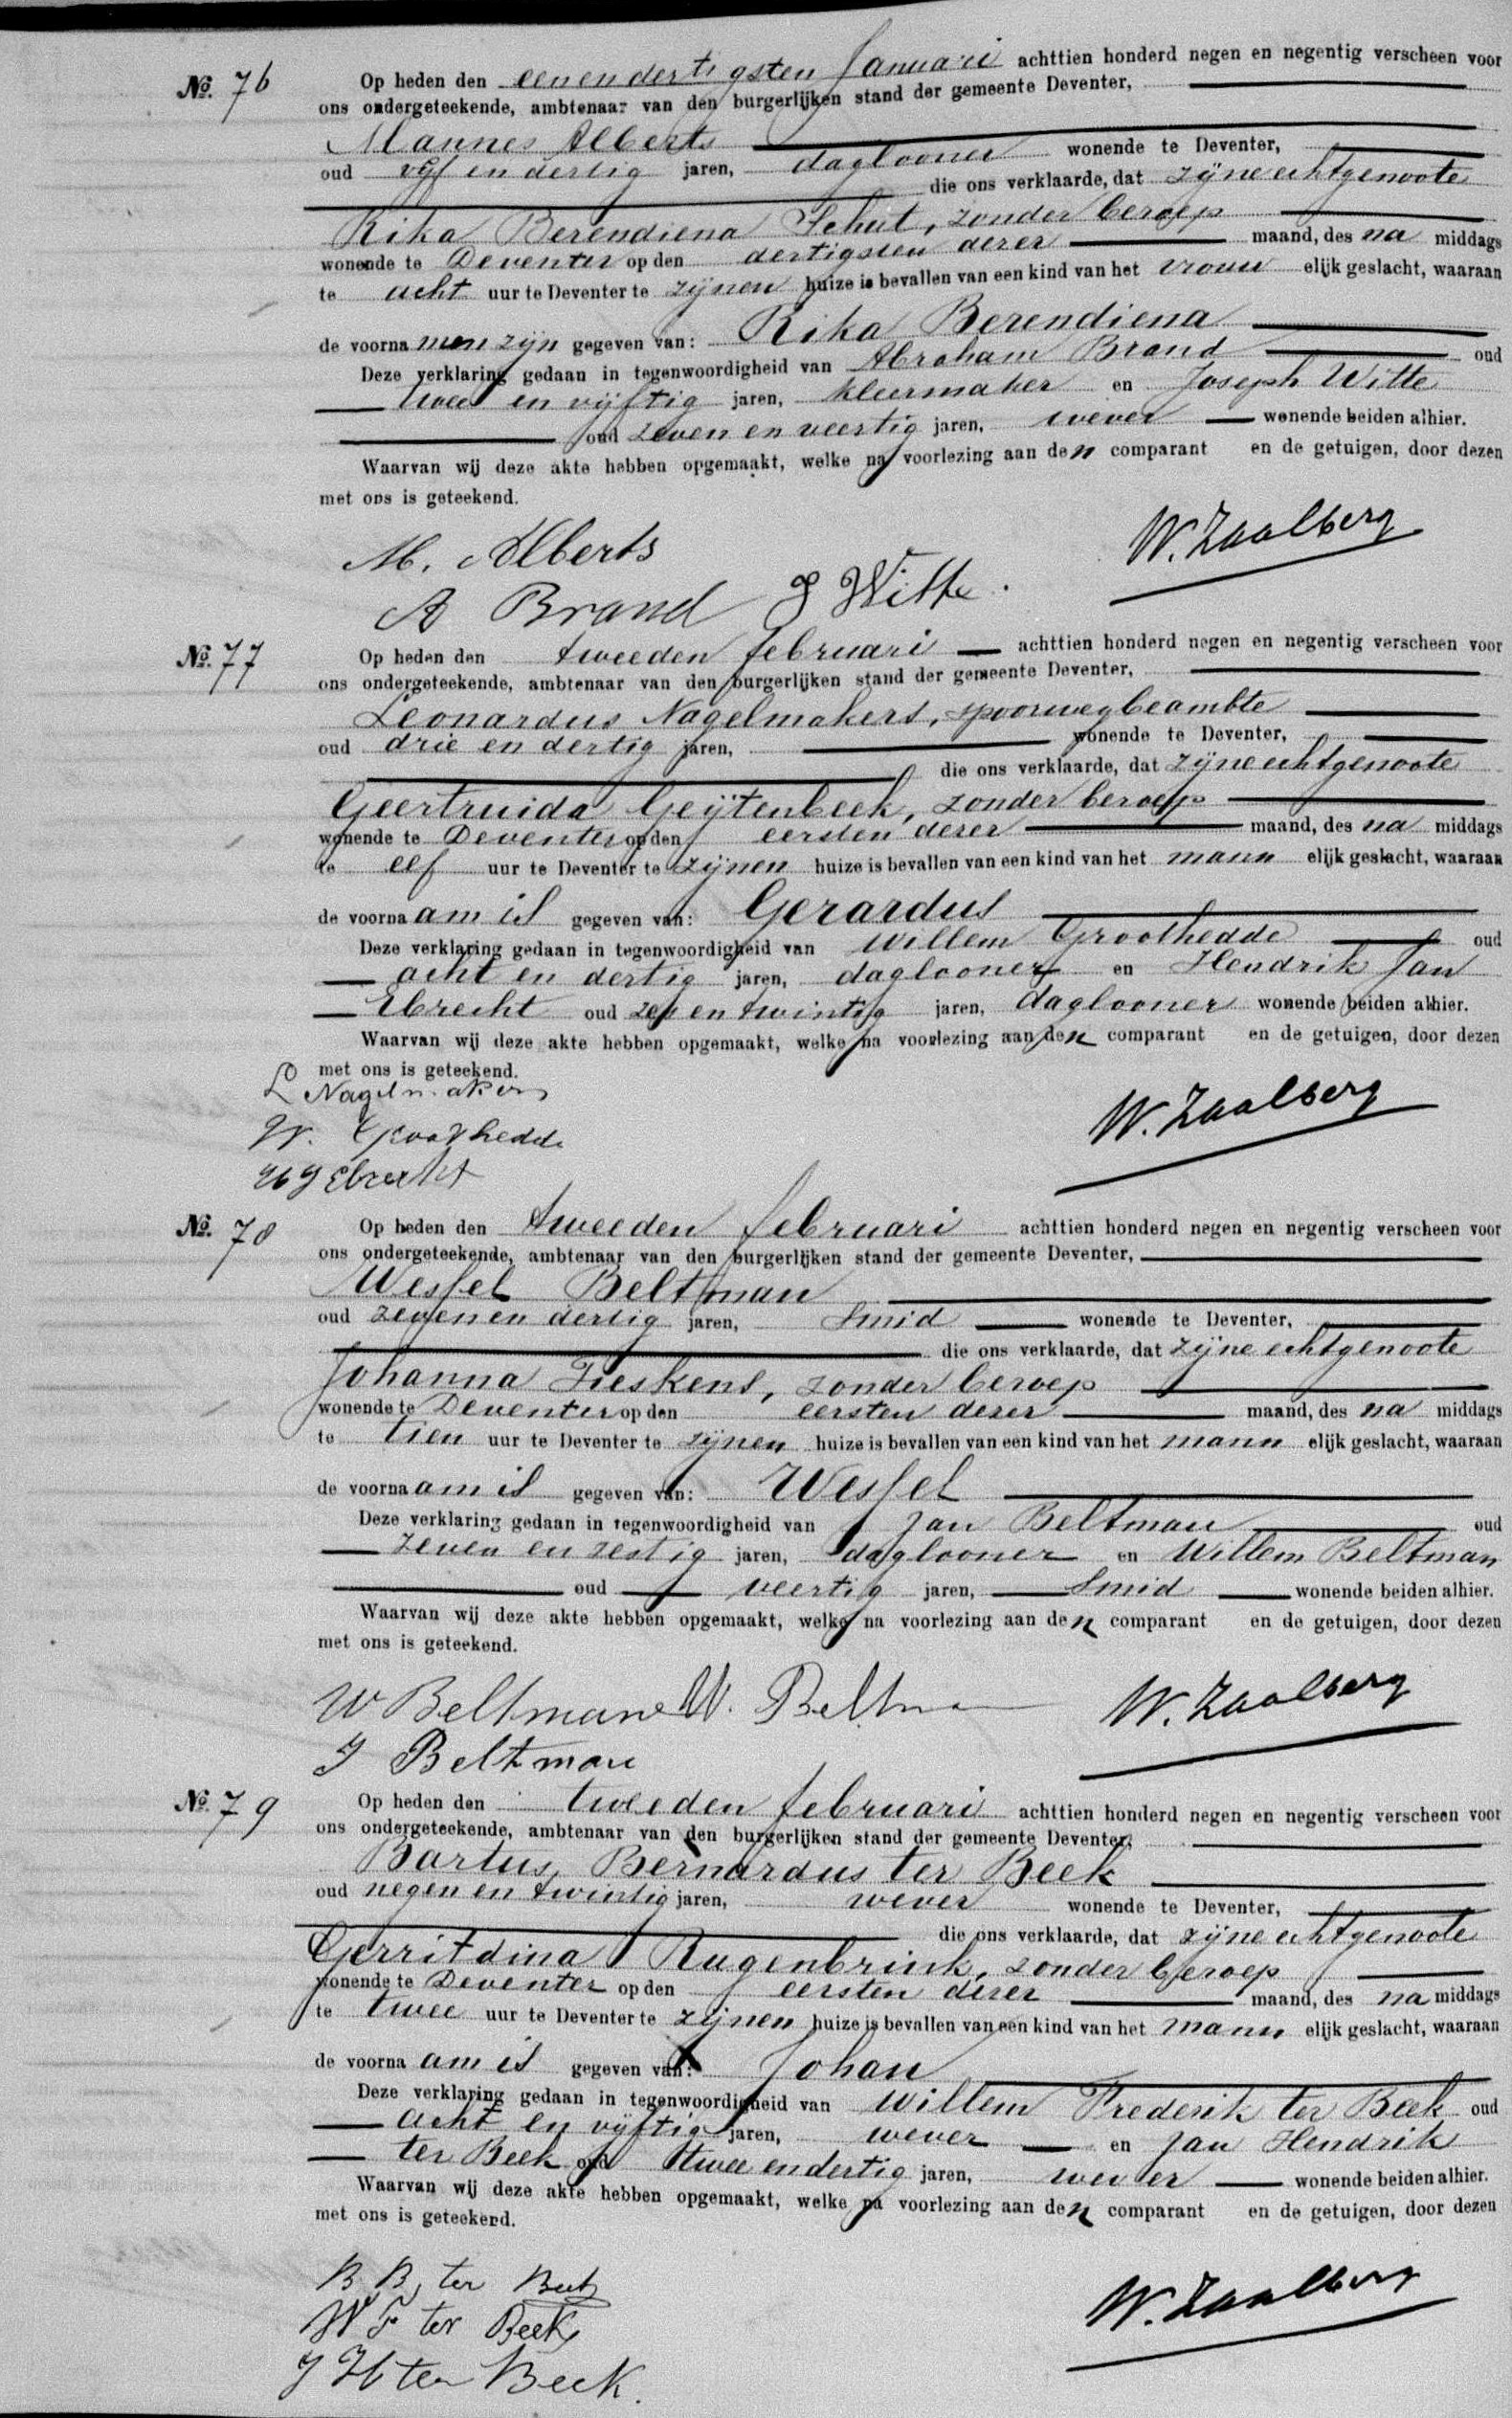 No. 76 Op heden den een en dertigsten Januari achttien honderd negen en negentig verscheen voor
ons ondergeteekende, ambtenaar van den burgerlijken stand der gemeente Deventer,
Mannes Alberts
oud vijf en dertig jaren, daglooner wonende te Deventer,
die ons verklaarde, dat zijne echtgenoote
Rika Berendiena Schut, zonder beroep
wonende te Deventer op den dertigsten dezer maand, des na middags
te acht uur te Deventer te zijnen huize is bevallen van een kind van het vrouw elijk geslacht, waaraan
de voorna men zijn gegeven van: Rika Berendiena
Deze verklaring gedaan in tegenwoordigheid van Abraham Brand oud
twee en vijftig jaren, kleermaker en Joseph Witte
oud zeven en veertig jaren, wever wonende beiden alhier.
Waarvan wij deze akte hebben opgemaakt, welke na voorlezing aan den comparant en de getuigen, door dezen
met ons is geteekend.
W. Zaalberg
M. Alberts
A Brand J Witte.
No. 77 Op heden den tweeden februari achttien honderd negen en negentig verscheen voor
ons ondergeteekende, ambtenaar van den burgerlijken stand der gemeente Deventer,
Leonardus Nagelmakers, spoorwegbeambte
oud drie en dertig jaren, wonende te Deventer,
die ons verklaarde, dat zijne echtgenoote
Geertruida Geijtenbeek, zonder beroep
wonende te Deventer op den eersten dezer maand, des na middags
te elf uur te Deventer te zijnen huize is bevallen van een kind van het mann elijk geslacht, waaraan
de voorna am is gegeven van: Gerardus
Deze verklaring gedaan in tegenwoordigheid van Willem Groothedde oud
acht en dertig jaren, daglooner en Hendrik Jan
Ebrecht oud zes en twintig jaren, daglooner wonende beiden alhier.
Waarvan wij deze akte hebben opgemaakt, welke na voorlezing aan den comparant en de getuigen, door dezen
met ons is geteekend.
L Nagelmakers
W. Zaalberg
W. Groothedde
H J Ebrecht
No. 78 Op heden den tweeden februari achttien honderd negen en negentig verscheen voor
ons ondergeteekende, ambtenaar van den burgerlijken stand der gemeente Deventer,
Wessel Beltman
oud zeven en dertig jaren, Smid wonende te Deventer,
die ons verklaarde, dat zijne echtgenoote
Johanna Fieskens, zonder beroep
wonende te Deventer op den eersten dezer maand, des na middags
te tien uur te Deventer te zijnen huize is bevallen van een kind van het mann elijk geslacht, waaraan
de voorna am is gegeven van: Wessel
Deze verklaring gedaan in tegenwoordigheid van Jan Beltman oud
zeven en zestig jaren, daglooner en Willem Beltman
oud veertig jaren, Smid wonende beiden alhier.
Waarvan wij deze akte hebben opgemaakt, welke na voorlezing aan den comparant en de getuigen, door dezen
met ons is geteekend.
W Beltman W. Beltman W. Zaalberg
J Beltman
No. 79 Op heden den tweeden februari achttien honderd negen en negentig verscheen voor
ons ondergeteekende, ambtenaar van den burgerlijken stand der gemeente Deventer,
Bartus Bernardus ter Beek
oud negen en twintig jaren, wever wonende te Deventer,
die ons verklaarde, dat zijne echtgenoote
Gerritdina Rugenbrink, zonder beroep
wonende te Deventer op den eersten dezer maand, des na middags
te twee uur te Deventer te zijnen huize is bevallen van een kind van het mann elijk geslacht, waaraan
de voorna am is gegeven van: Johan
Deze verklaring gedaan in tegenwoordigheid van Willem Frederik ter Beek oud
acht en vijftig jaren, wever en Jan Hendrik
ter Beek oud twee en dertig jaren, wever wonende beiden alhier.
Waarvan wij deze akte hebben opgemaakt, welke na voorlezing aan den comparant en de getuigen, door dezen
met ons is geteekend.
B B ter Beek
W F ter Beek W. Zaalberg
J H ter Beek.